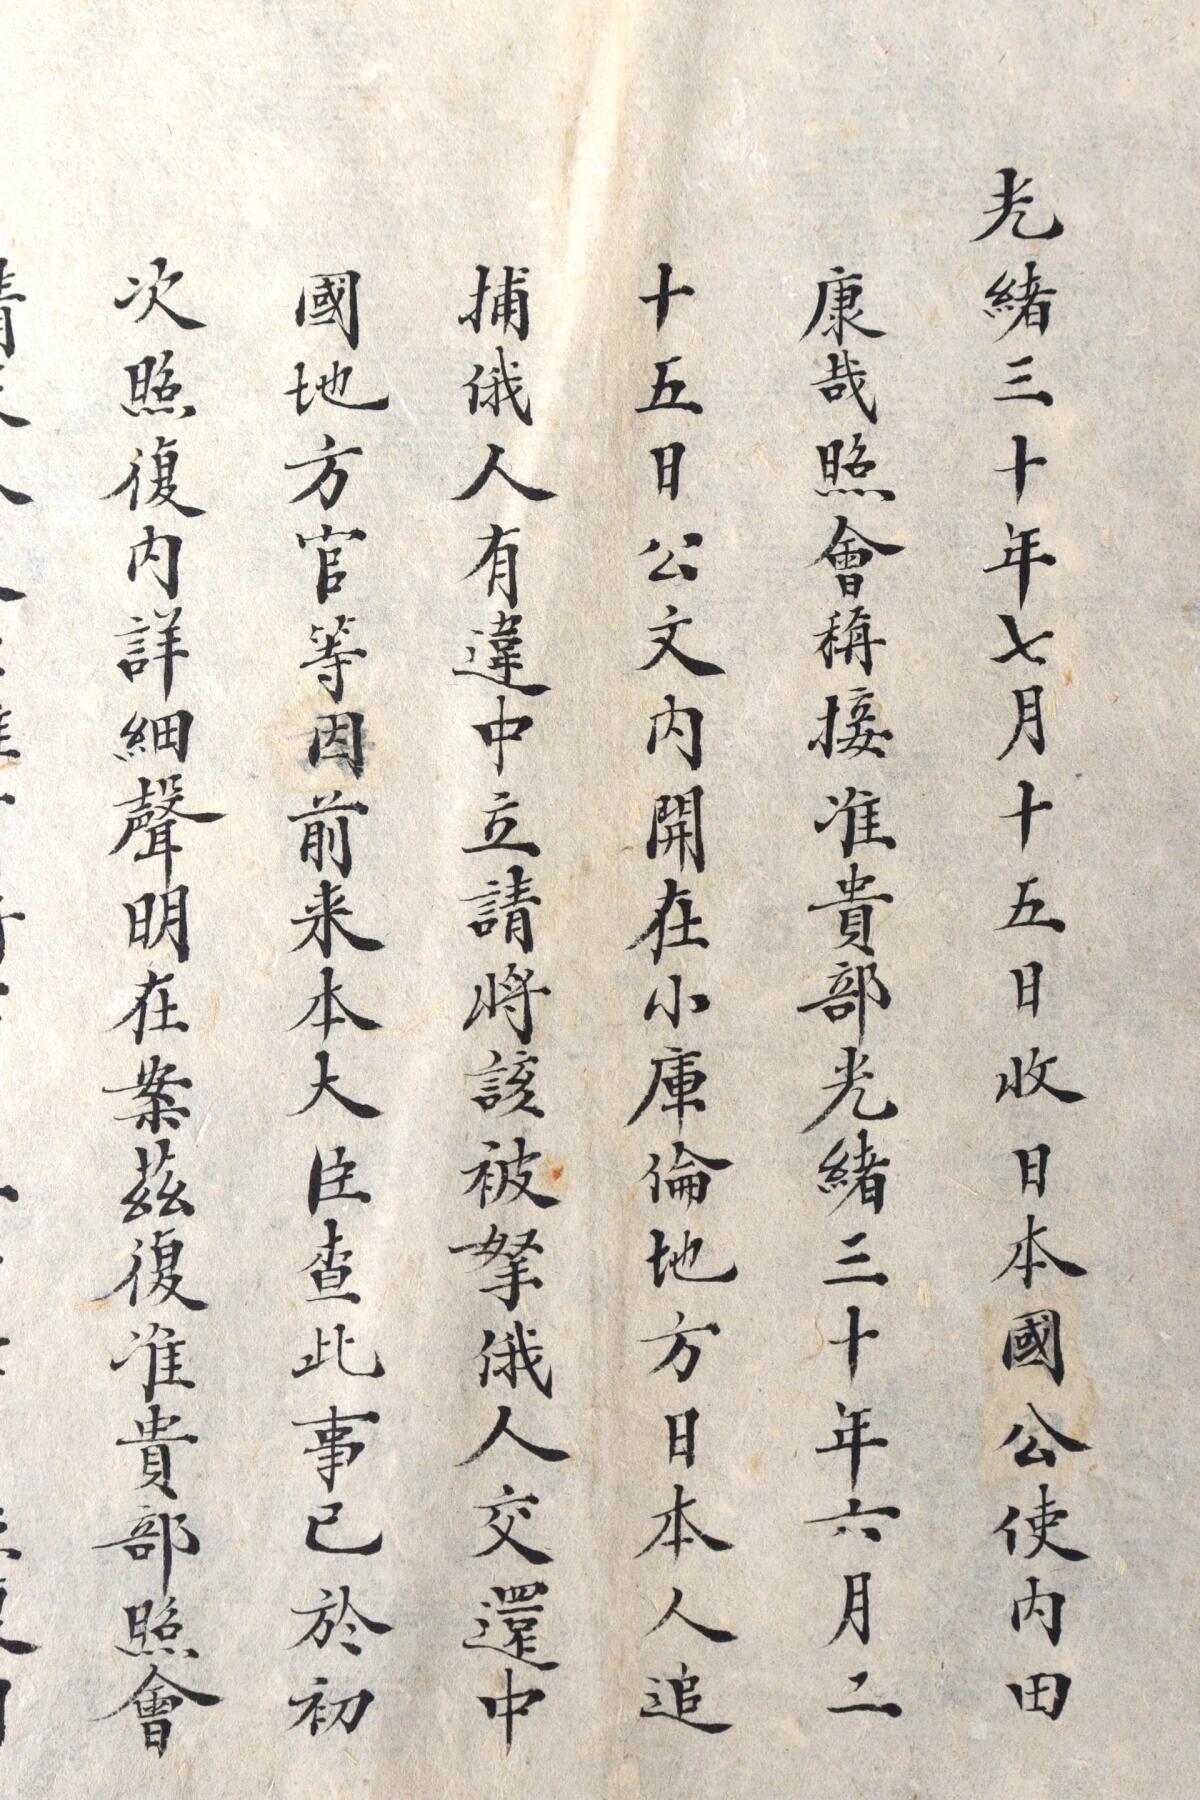 光緒三十年七月十五日收日本國公使内田
康哉照會稱接准貴部光緒三十年六月二
十五日公文内開在小庫倫地方日本人追
捕俄人有違中立請將該被拏俄人交還中
國地方官等因前来本大臣查此事已於初
次照復内詳細聲明在案茲復准貴部照會